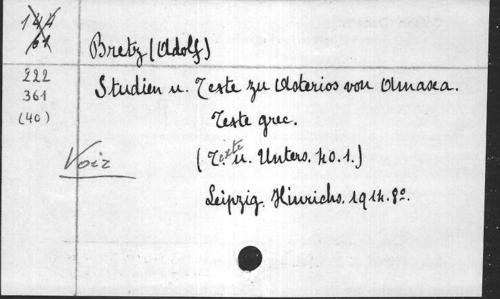 Bretz (Adolf)
222
361
(40)
Studien u. Texte zu Asterios von Amasea.
Texte grec.
Voir
(Texte u. Unters. 40.1.)
Leipzig. Hinrichs. 1914. 8º.